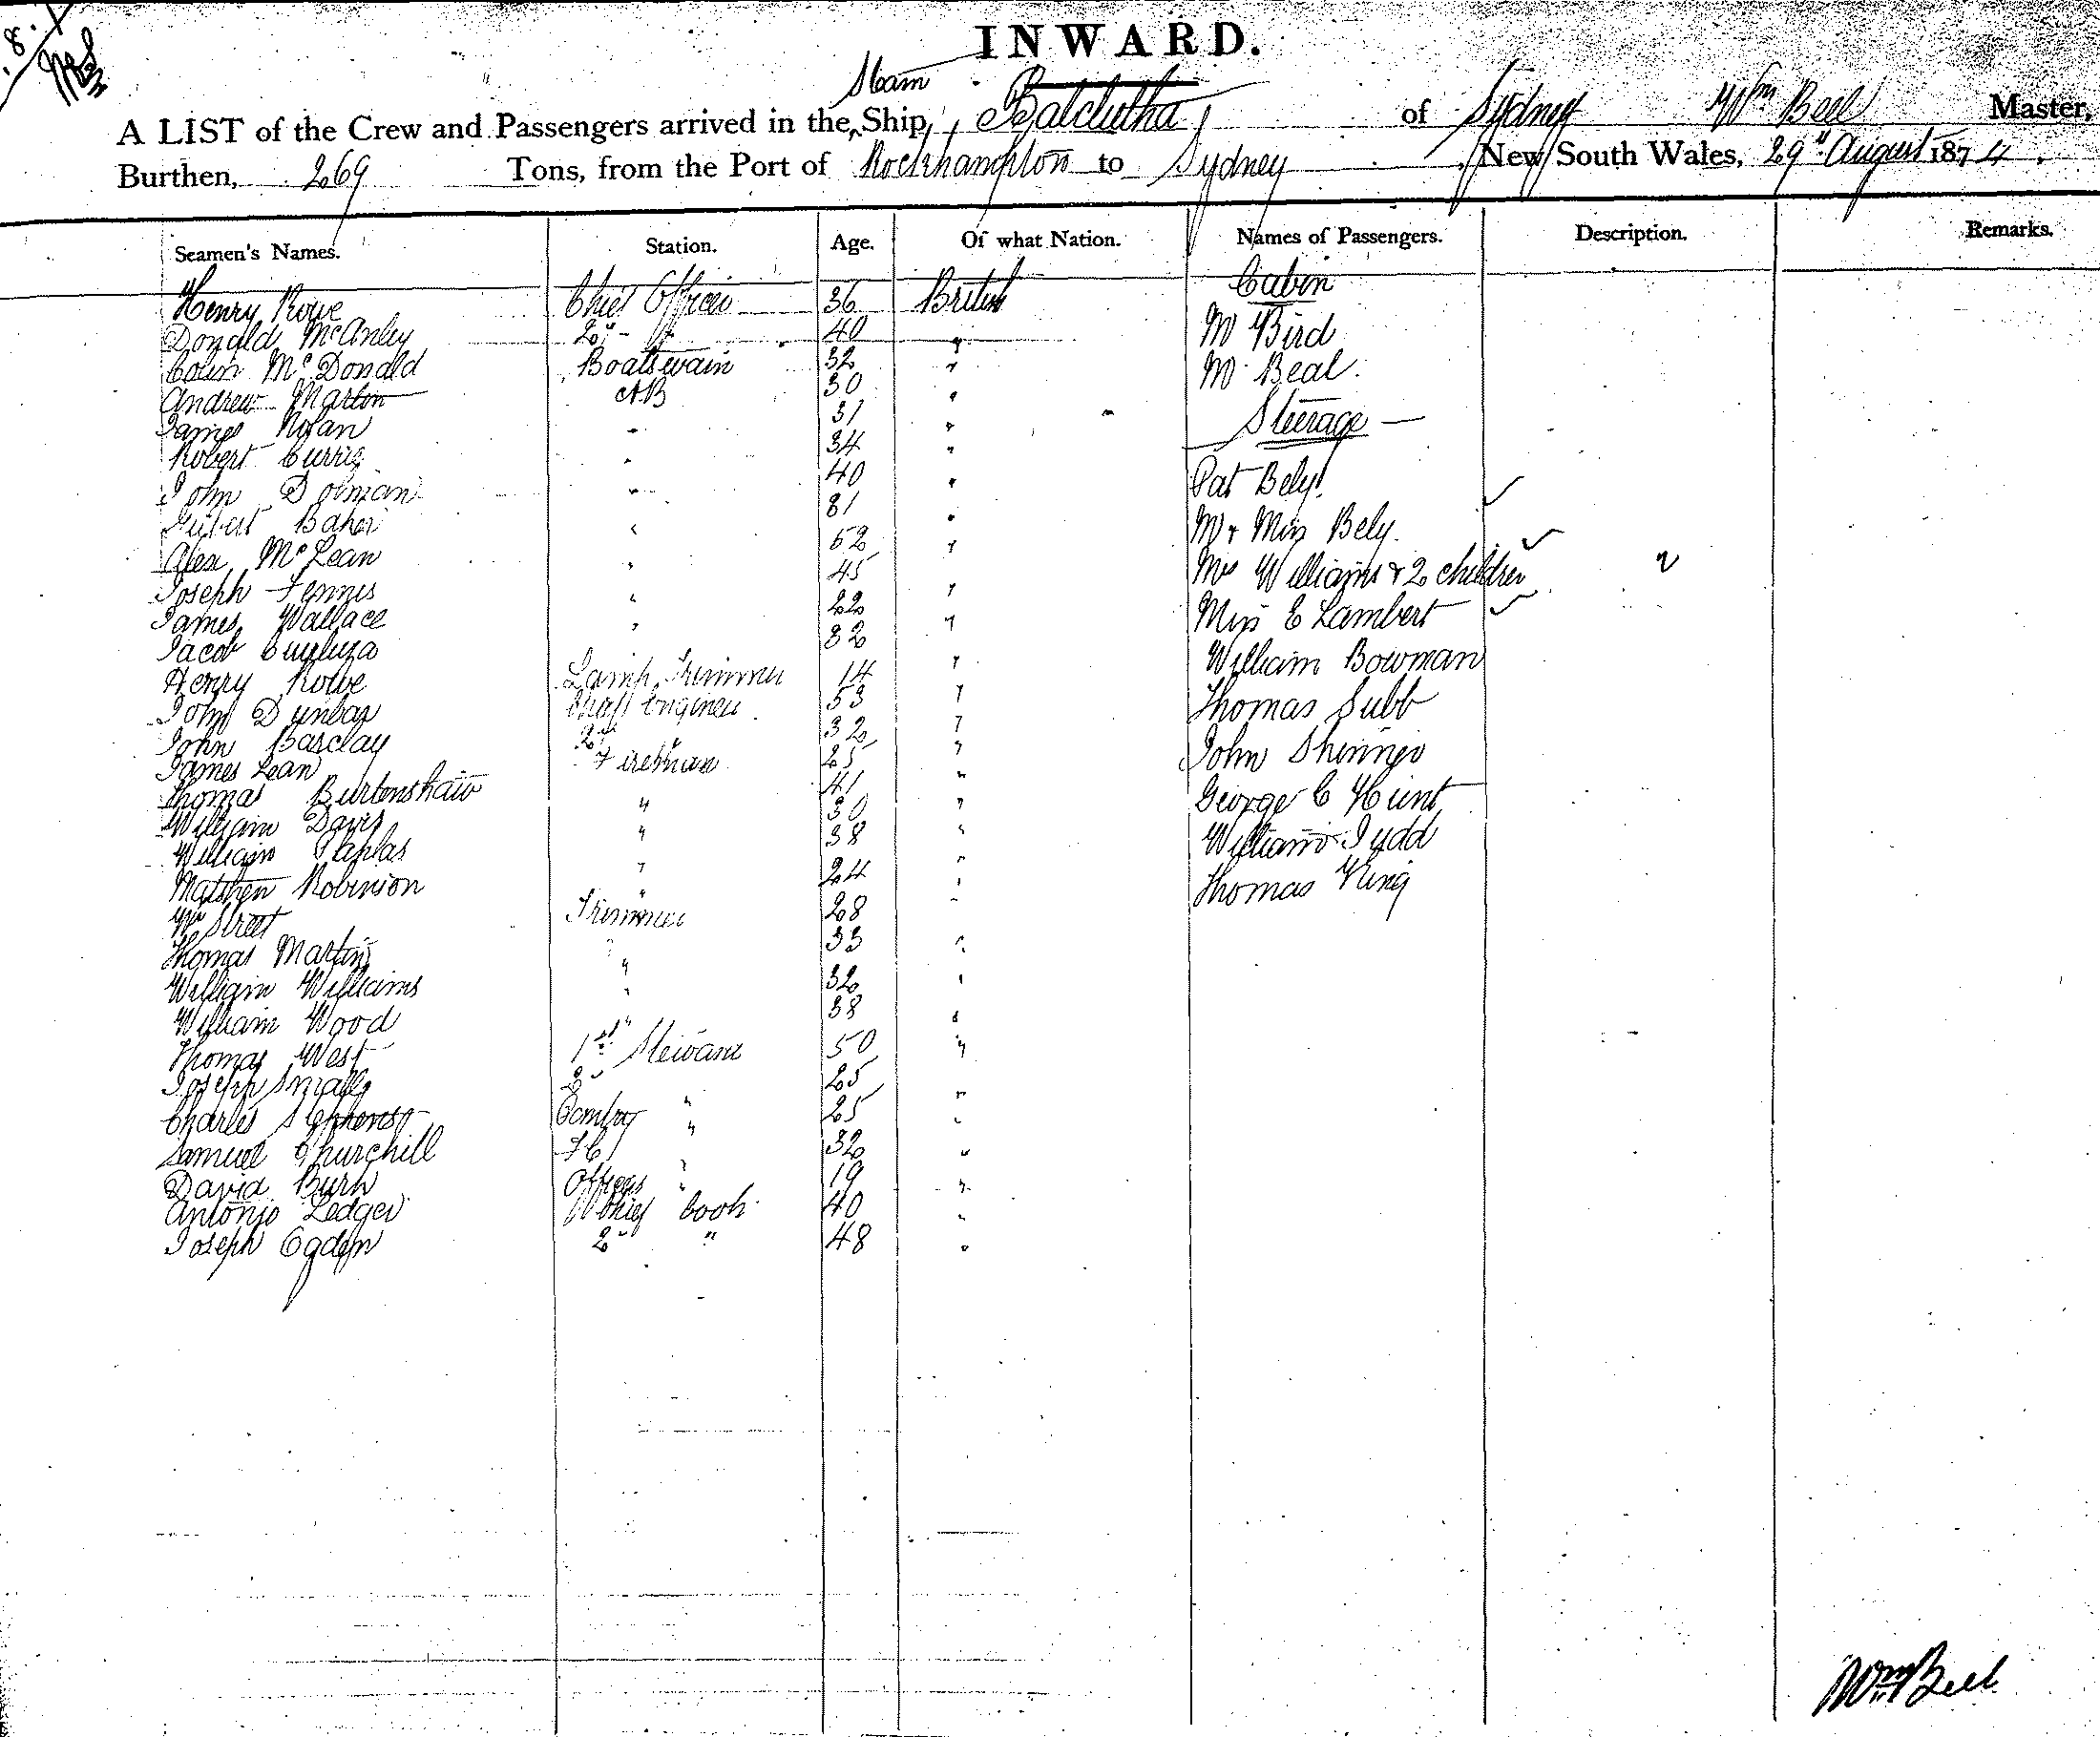 INWARD.
Steam
A LIST of the Crew and Passengers arrived in the Ship Balclutha of Sydney Wm Beel Master,
Burthen, 269 Tons, from the Port of Rockhampton to Sydney New South Wales, 29th August 1874.
Seamen's Names. Station. Age. Of what Nation. Names of Passengers. Description. Remarks.
Henry Rowe Chief Officer 36 British Cabin
Donald McAnley 2nd " 40 " Mr Bird
Colin McDonald Boatswain 32 " Mr Beal
Andrew Martin AB 30 "
James Nolan " 31 " Steerage
Robert Currie " 34 "
John Dolman " 40 " Pat Bely
Baker " 31 " Mr & Miss Bely
Alex McLean " 52 " Mrs Williams & 2 children 2
Joseph Fennis " 45 " Miss E Lambert
James Wallace " 22 " William Bowman
Jacob " 32 " Thomas Subb
Henry Rowe Lamp Trimmer 14 " John Skinner
John Dunbar Chief Engineer 53 " George C Hunt
John Barclay 2nd " 32 " William Judd
James Lean Fireman 25 " Thomas King
Thomas Burtonshaw " 41 "
William Davis " 30 "
William " 38 "
Matthew Robinson " 24 "
Wm Street Trimmer 28 "
Thomas Martin " 33 "
William Williams " 32 "
William Wood " 38 "
Thomas West 1st Steward 50 "
Joseph Small 2nd " 25 "
Charles Stephenson " 25 "
Samuel Churchill F C " 32 "
David Burk Officers " 19 "
Antonio Ledger Chief Cook 40 "
Joseph Ogden 2nd " 48 "
Wm Beel